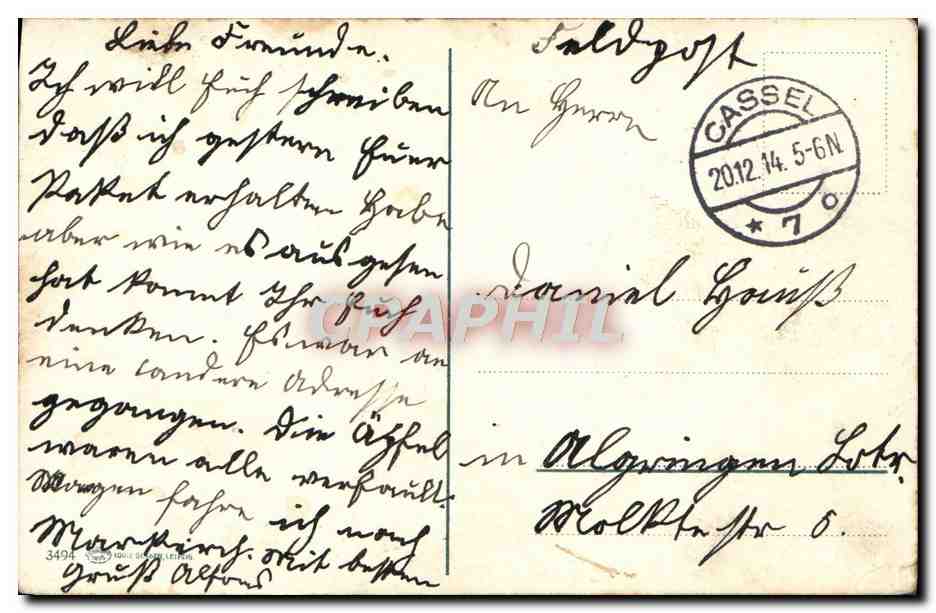 Liebe Freunde.
Ich will Euch schreiben
daß ich gestern Euer
Paket erhalten Habe
aber wie es aus gesen
hat kommt Ihr Euch
denken. Es war an
eine andere Adresse
gegangen. Die Äpfel
waren alle verfault.
Morgen fahre ich nach
Markirch. Mit besten
Gruß Alfons
3494
LOUIS GLASER, LEIPZIG
Feldpost
An Herrn
CASSEL
20.12.14. 5-6N
* 7 o
Daniel Hauß
CPAPHIL
in Algringen Lotr.
Molktestr 5.